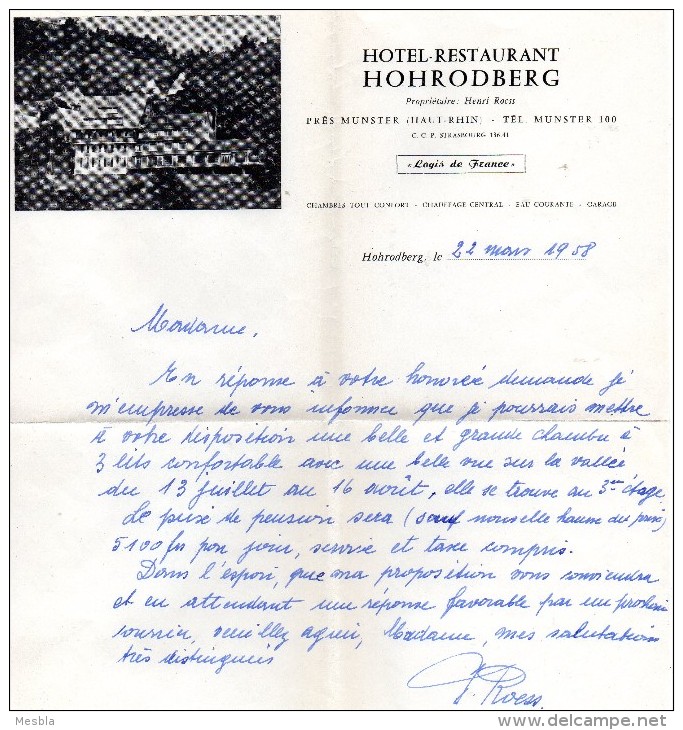 HOTEL-RESTAURANT
HOHRODBERG
Propriétaire: Henri Roess
PRÈS MUNSTER (HAUT-RHIN) - TÉL. MUNSTER 100
C. C. P. STRASBOURG 136.41
« Logis de France »
CHAMBRES TOUT CONFORT - CHAUFFAGE CENTRAL - EAU COURANTE - GARAGE
Hohrodberg, le 22 mars 1958
Madame,
En réponse à votre honorée demande je
m'empresse de vous informer que je pourrais mettre
à votre disposition une belle et grande chambre à
3 lits confortable avec une belle vue sur la vallée
du 13 juillet au 16 août, elle se trouve au 3ème étage.
Le prix de pension sera (sauf nouvelle hausse du prix)
5100 frs par jour, service et taxe compris.
Dans l'espoir, que ma proposition vous conviendra
et en attendant une réponse favorable par un prochain
courrier, veuillez agréer, Madame, mes salutations
très distinguées
Roess.
Mesbla
delcampe.net